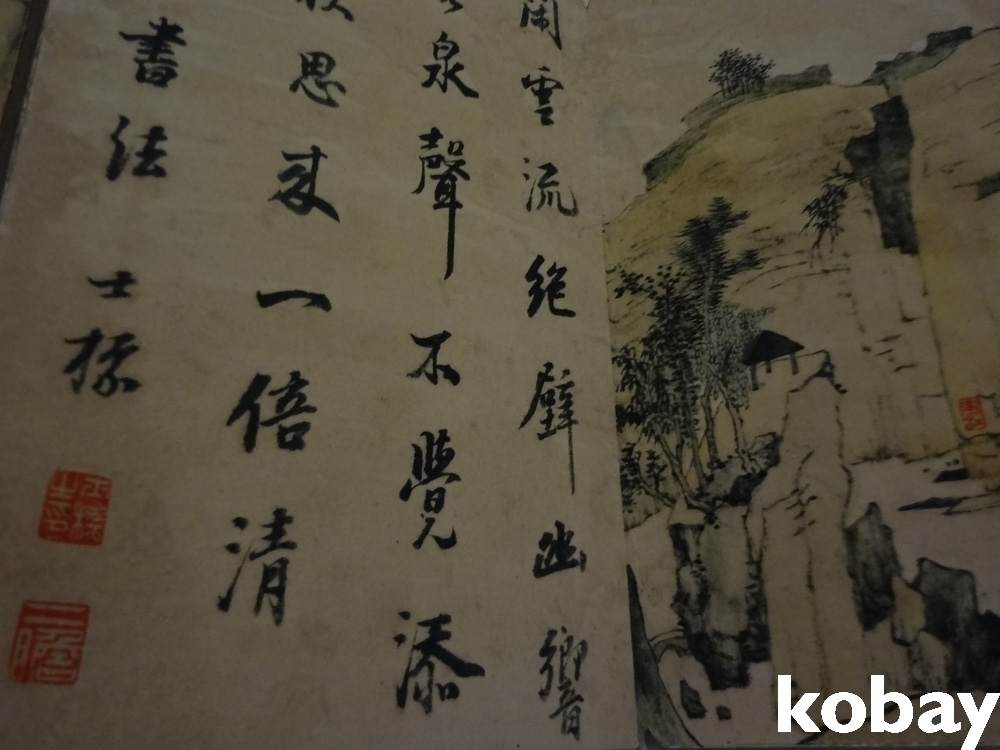 閑雲流絶壁幽響
泉聲不覺添
思来一倍清
書法 士標
二瞻
kobay